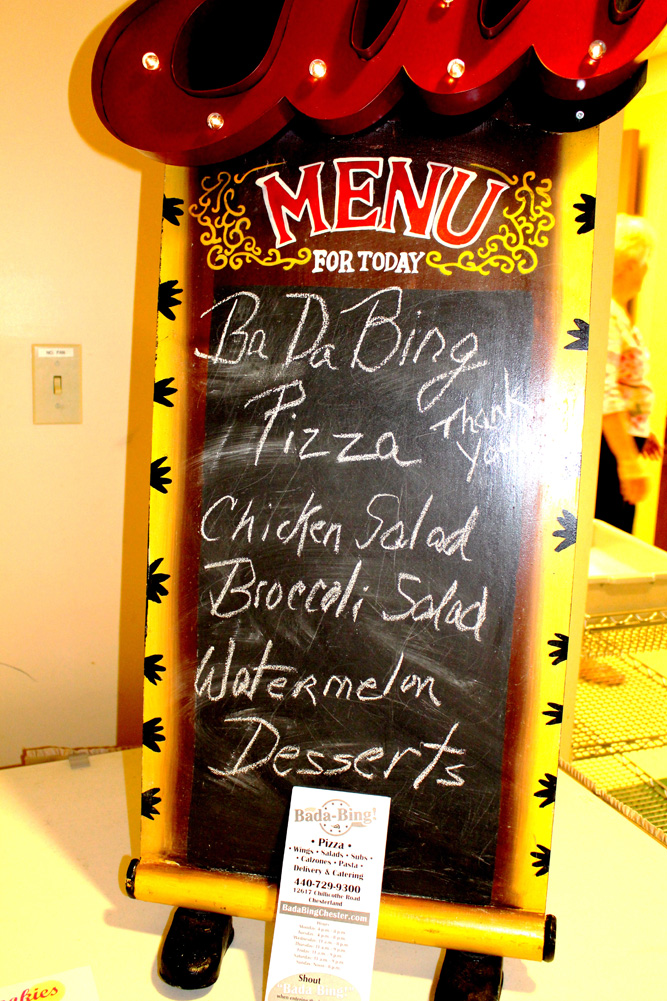 MENU
FOR TODAY
Ba Da Bing
Pizza
Thank
You
Chicken Salad
Broccoli Salad
Watermelon
Desserts
Bada-Bing!
• Pizza •
• Wings • Salads • Subs •
• Calzones • Pasta •
Delivery & Catering
440-729-9300
12617 Chillicothe Road
Chesterland
BadaBingChester.com
Hours
Shout
"Bada-Bing!"
okies